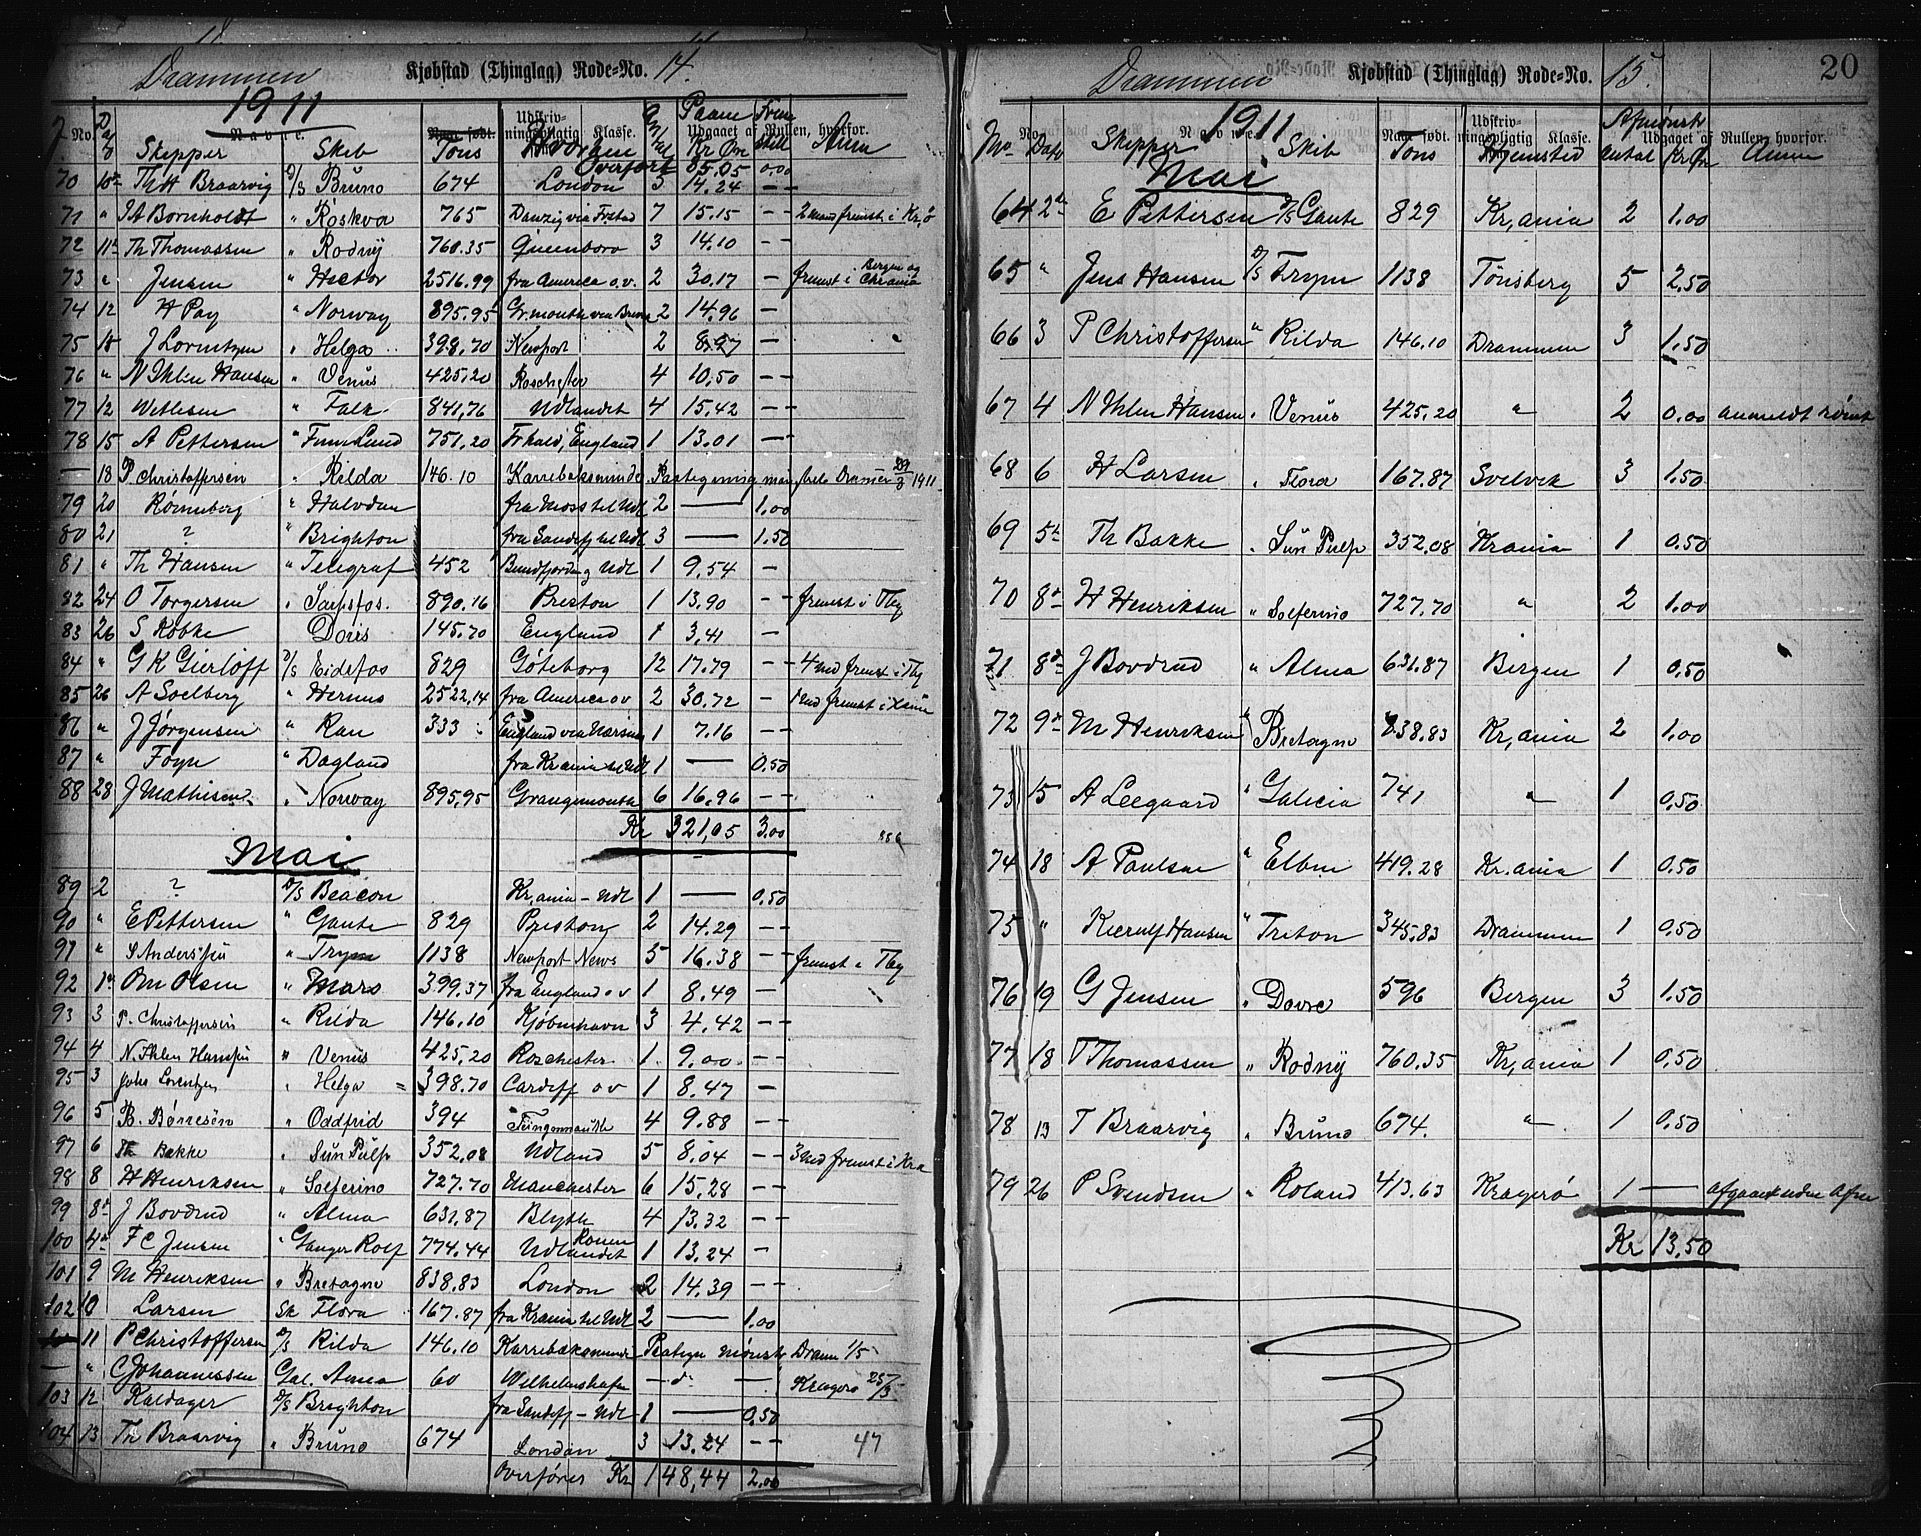 Drammen Kjøbstad (Thinglag) Rode-No. 14.
1911
No. Dag Navne. Udskrivningspligtig Klasse. Udgaaet af Rullen, hvorfor.
Skipper Skib Tons Hvorhen Kr Øre Anm
Overført 85.05 0.00
70 10de Thdt Braarvig D/S Bruno 674 London 3 14.24
71 " J A Bornholdt " Röskva 765 Danzig via Frstad 7 15.15 — — 2 mand fremst i Kr,ø
72 11te Th Thomassen " Rodny 760.35 Queenboro 3 14.10 — —
73 " Jensen " Hector 2516.99 fra America o.v. 2 30.17 — fremst i Bergen og Chrania
74 12 H Pay " Norway 895.95 Gr.mouth via Brevik 2 14.96 — —
75 18 J Lorentzen " Helga 398.70 Newport 2 8.97 —
76 " N Ihlen Hansen " Venus 425.20 Roschester 4 10.50 — —
77 12 Wetlesen " Falk 841,76 Udlandet 4 15.42 — —
78 15 A Pettersen " Finn Lund 751.20 Fr.hald, England 1 13.01 — —
— 18 P Christoffersen " Rilda 146.10 Karrebæksminde Paategning mønstrols Dramen 29/3 1911
79 20 Rønneberg " Halvdan fra Moss til Udl 2 — 1.00
80 21 ? " Brighton fra Sandefj til Udl 3 — 1.50
81 " Th Hansen " Telegraf 452 Bundfjorden og Udl 1 9.54 —
82 24 O Torgersen " Sarpsfos. 890.16 Preston 1 13.90 — fremst i Tbg
83 26 S Købke Doris 145.70 England 1 3.41 —
84 " G K Gierløff D/S Eidsfos 829 Göteborg 12 17.79 — — 4 md fremst i Tbg
85 26 A Soelberg " Hermes 2522,14 fra America o v 2 30.72 — 1 md fremst i Kania
86 " J Jørgensen " Ran 333 England via Nærsnes 1 7.16 —
87 " Foyn " Dagland fra Krania til Udl 1 — 0.50
88 28 J Mathisen " Norway 895,95 Grangemouth 6 16.96 — —
Kr 321,05 3.00
Mai
89 2 ? D/S Beacon Kr,ania – Udl 1 — 0.50
90 " E Pettersen " Gaute 829 Preston 2 14.29 — —
91 " S Anderssen " Trym 1138 Newport News 5 16.38 — — fremst i Tbg
92 1ste Om Olsen " Mars 399.37 fra England o v 1 8.49 —
93 3 P. Christoffersen " Rilda 146.10 Kjøbenhavn 3 4.42 — —
94 4 N. Ihlen Hanssen " Venus 425.20 Rochester 1. 9.00 — —
95 3 Johs Lorentzen " Helga = 398.70 Cardiff o v 1 8.47 —
96 5 B. Børresen " Oddfrid 394 Teingonmouth 4 9.88 — —
97 6 Th Bakke " Sun Pulp 352,08 Udland 5 8.04 — — 3 md fremst i Kra
98 8 H Henriksen " Solferino 727.70 Manchester 6 15.28 — —
99 8de J Bovdrud " Alma 631.87 Blyth 4 13.32 — —
100 4de F C Jensen " Ganger Rolf 774.44 Udlandet Rouen 1 13.24 —
101 9 M Henriksen " Bretagne 838.83 London 2 14.39 — —
102 10 Larsen Sk Flora 167.87 fra Krania til Udl 2 — 1.00
11 P Christoffersen D/S Rilda 146.10 Karrebæksminde Paategn mønstr Dram 1/5
— " C Johannessen Gal. Anna 60 Wilhelmshafn — do — Kragerø 25/3
103 12 Kaldager D/S Brighton fra Sandefj – Udl 1 — 0.50
104 13 Th Braarvig " Bruno 674 London 3 13.24 — — 47
Overføres Kr 148,44 2.00
20
Drammen Kjøbstad (Thinglag) Rode-No. 15.
1911
No. Navne. født. Udskrivningspligtig Klasse. Udgaaet af Rullen, hvorfor.
No Dato Skipper Skib Tons Hjemsted Afmønstr Antal Kr Ør Anm
Mai
64 2den E Pettersen D/S Gaute 829 Kr,ania 2 1.00
65 " Jens Hansen D/S Trym 1138 Tönsberg 5 2.50
66 3 P Christoffersen " Rilda 146.10 Drammen 3 1.50
67 4 N Ihlen Hansen " Venus 425.20 " 2 0.00 anmeldt rømt
68 6 H Larsen " Flora 167.87 Svelvik 3 1.50
69 5te Th Bakke " Sun Pulp 352.08 Krania 1 0.50
70 8de H Henriksen " Solferino 727.70 " 2 1.00
71 8de J Bovdrud " Alma 631.87 Bergen 1 0.50
72 9de M Henriksen " Bretagne 838.83 Kr,ania 2 1.00
73 15 A Leegaard " Galicia 741 " 1 0.50
74 18 A Paulsen " Elben 419.28 Kr.ania 1 0.50
75 " Kierulf Hansen " Triton 345.83 Drammen 1 0.50
76 19 G Jensen " Dovre 596 Bergen 3 1.50
77 18 T Thomassen " Rodny 760.35 Kr,ania 1 0.50
78 13 T Braarvig " Bruno 674. " 1 0.50
79 26 P Svendsen " Roland 413.63 Kragerø 1 — afgaaet uden Afm
Kr 13,50